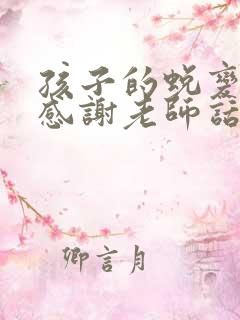 孩子的蛻變
感謝老師話
卿言月